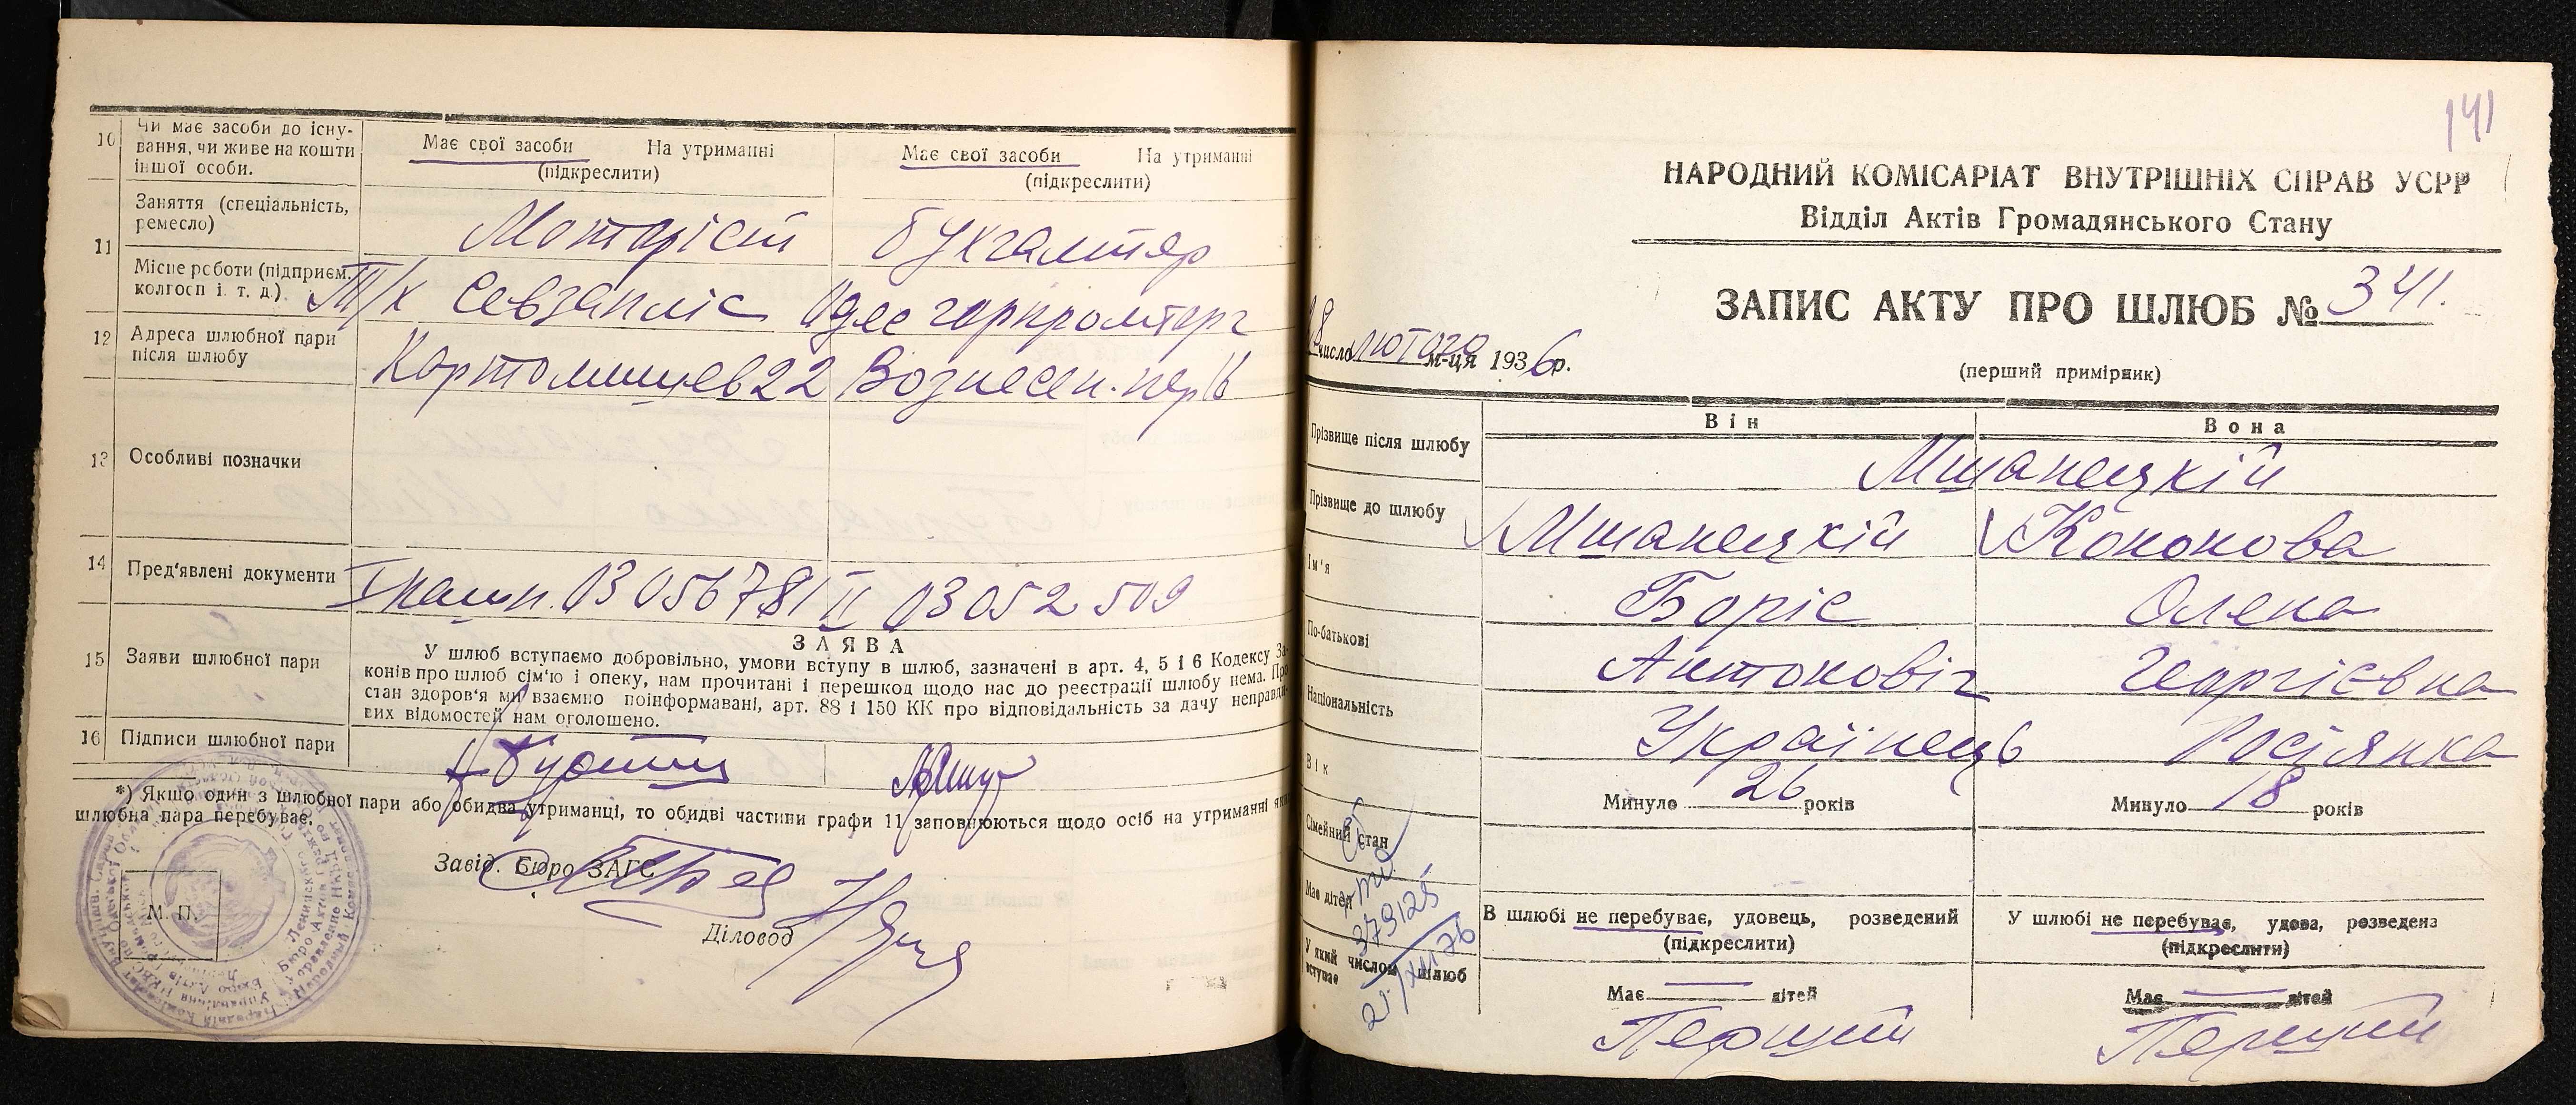 10 Чи має засоби до існу-
вання, чи живе на кошти
іншої особи.
Має свої засоби На утриманні
(підкреслити)
Має свої засоби На утриманні
(підкреслити)
11 Заняття (спеціальність,
ремесло)
Моторіст бухгалтер
Місце роботи (підприєм.
колгосп і. т. д.)
Т/х Севзапліс Одес горпромторг
12 Адреса шлюбної пари
після шлюбу
Картамишев 22 Вознесен. пер 16
13 Особливі позначки
14 Пред'явлені документи
I пашп. 03056781 II 03052509
15 Заяви шлюбної пари
ЗАЯВА
У шлюб вступаємо добровільно, умови вступу в шлюб, зазначені в арт. 4, 5 і 6 Кодексу За-
конів про шлюб сім'ю і опеку, нам прочитані і перешкод щодо нас до реєстрації шлюбу нема. Про
стан здоров'я ми взаємно поінформавані, арт. 88 і 150 КК про відповідальність за дачу неправди-
вих відомостей нам оголошено.
16 Підписи шлюбної пари
*) Якщо один з шлюбної пари або обидва утриманці, то обидві частини графи 11 заповнюються щодо осіб на утриманні яких
шлюбна пара перебуває.
Завід. Бюро ЗАГС
Діловод
М. П.
141
НАРОДНИЙ КОМІСАРІАТ ВНУТРІШНІХ СПРАВ УСРР
Відділ Актів Громадянського Стану
ЗАПИС АКТУ ПРО ШЛЮБ № 341.
18 число лютого м-ця 1936 р.
(перший примірник)
Він Вона
Прізвище після шлюбу
Мшанецкій
Прізвище до шлюбу
Мшанецкій Кононова
Ім'я
Боріс Олена
По-батькові
Антоновіч Георгієвна
Національність
Українець Росіянка
Вік
Минуло 26 років Минуло 18 років
Сімейний стан
В шлюбі не перебуває, удовець, розведений
(підкреслити)
У шлюбі не перебуває, удова, розведена
(підкреслити)
Має дітей
Має — дітей Має — дітей
У який числом шлюб
вступає
Перший Перший
379125
25/XII 76